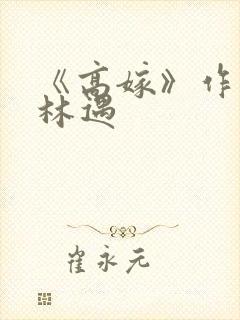 《高嫁》作
林遇
崔永元